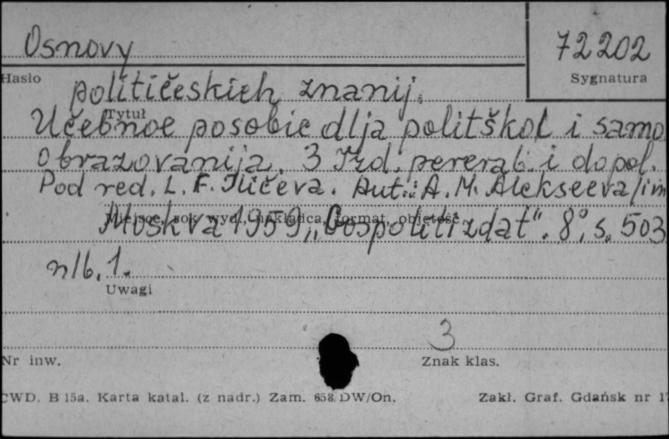 Osnovy
72202
Hasło
Sygnatura
političeskich znanij.
Tytuł
Učebnoe posobie dlja politškol i samo
obrazovanija. 3 Izd. pererab. i dopol.
Pod red. L. F. Iličeva. Aut.: A. M. Alekseeva/im
Miejsce, rok wyd., nakładca, format, objętość
Moskva 1959 „Gospolitizdat". 8°, s. 503
nlb. 1.
Uwagi
3
Nr inw.
Znak klas.
CWD. B 15a. Karta katal. (z nadr.) Zam. 658/DW/On.
Zakł. Graf. Gdańsk nr 1